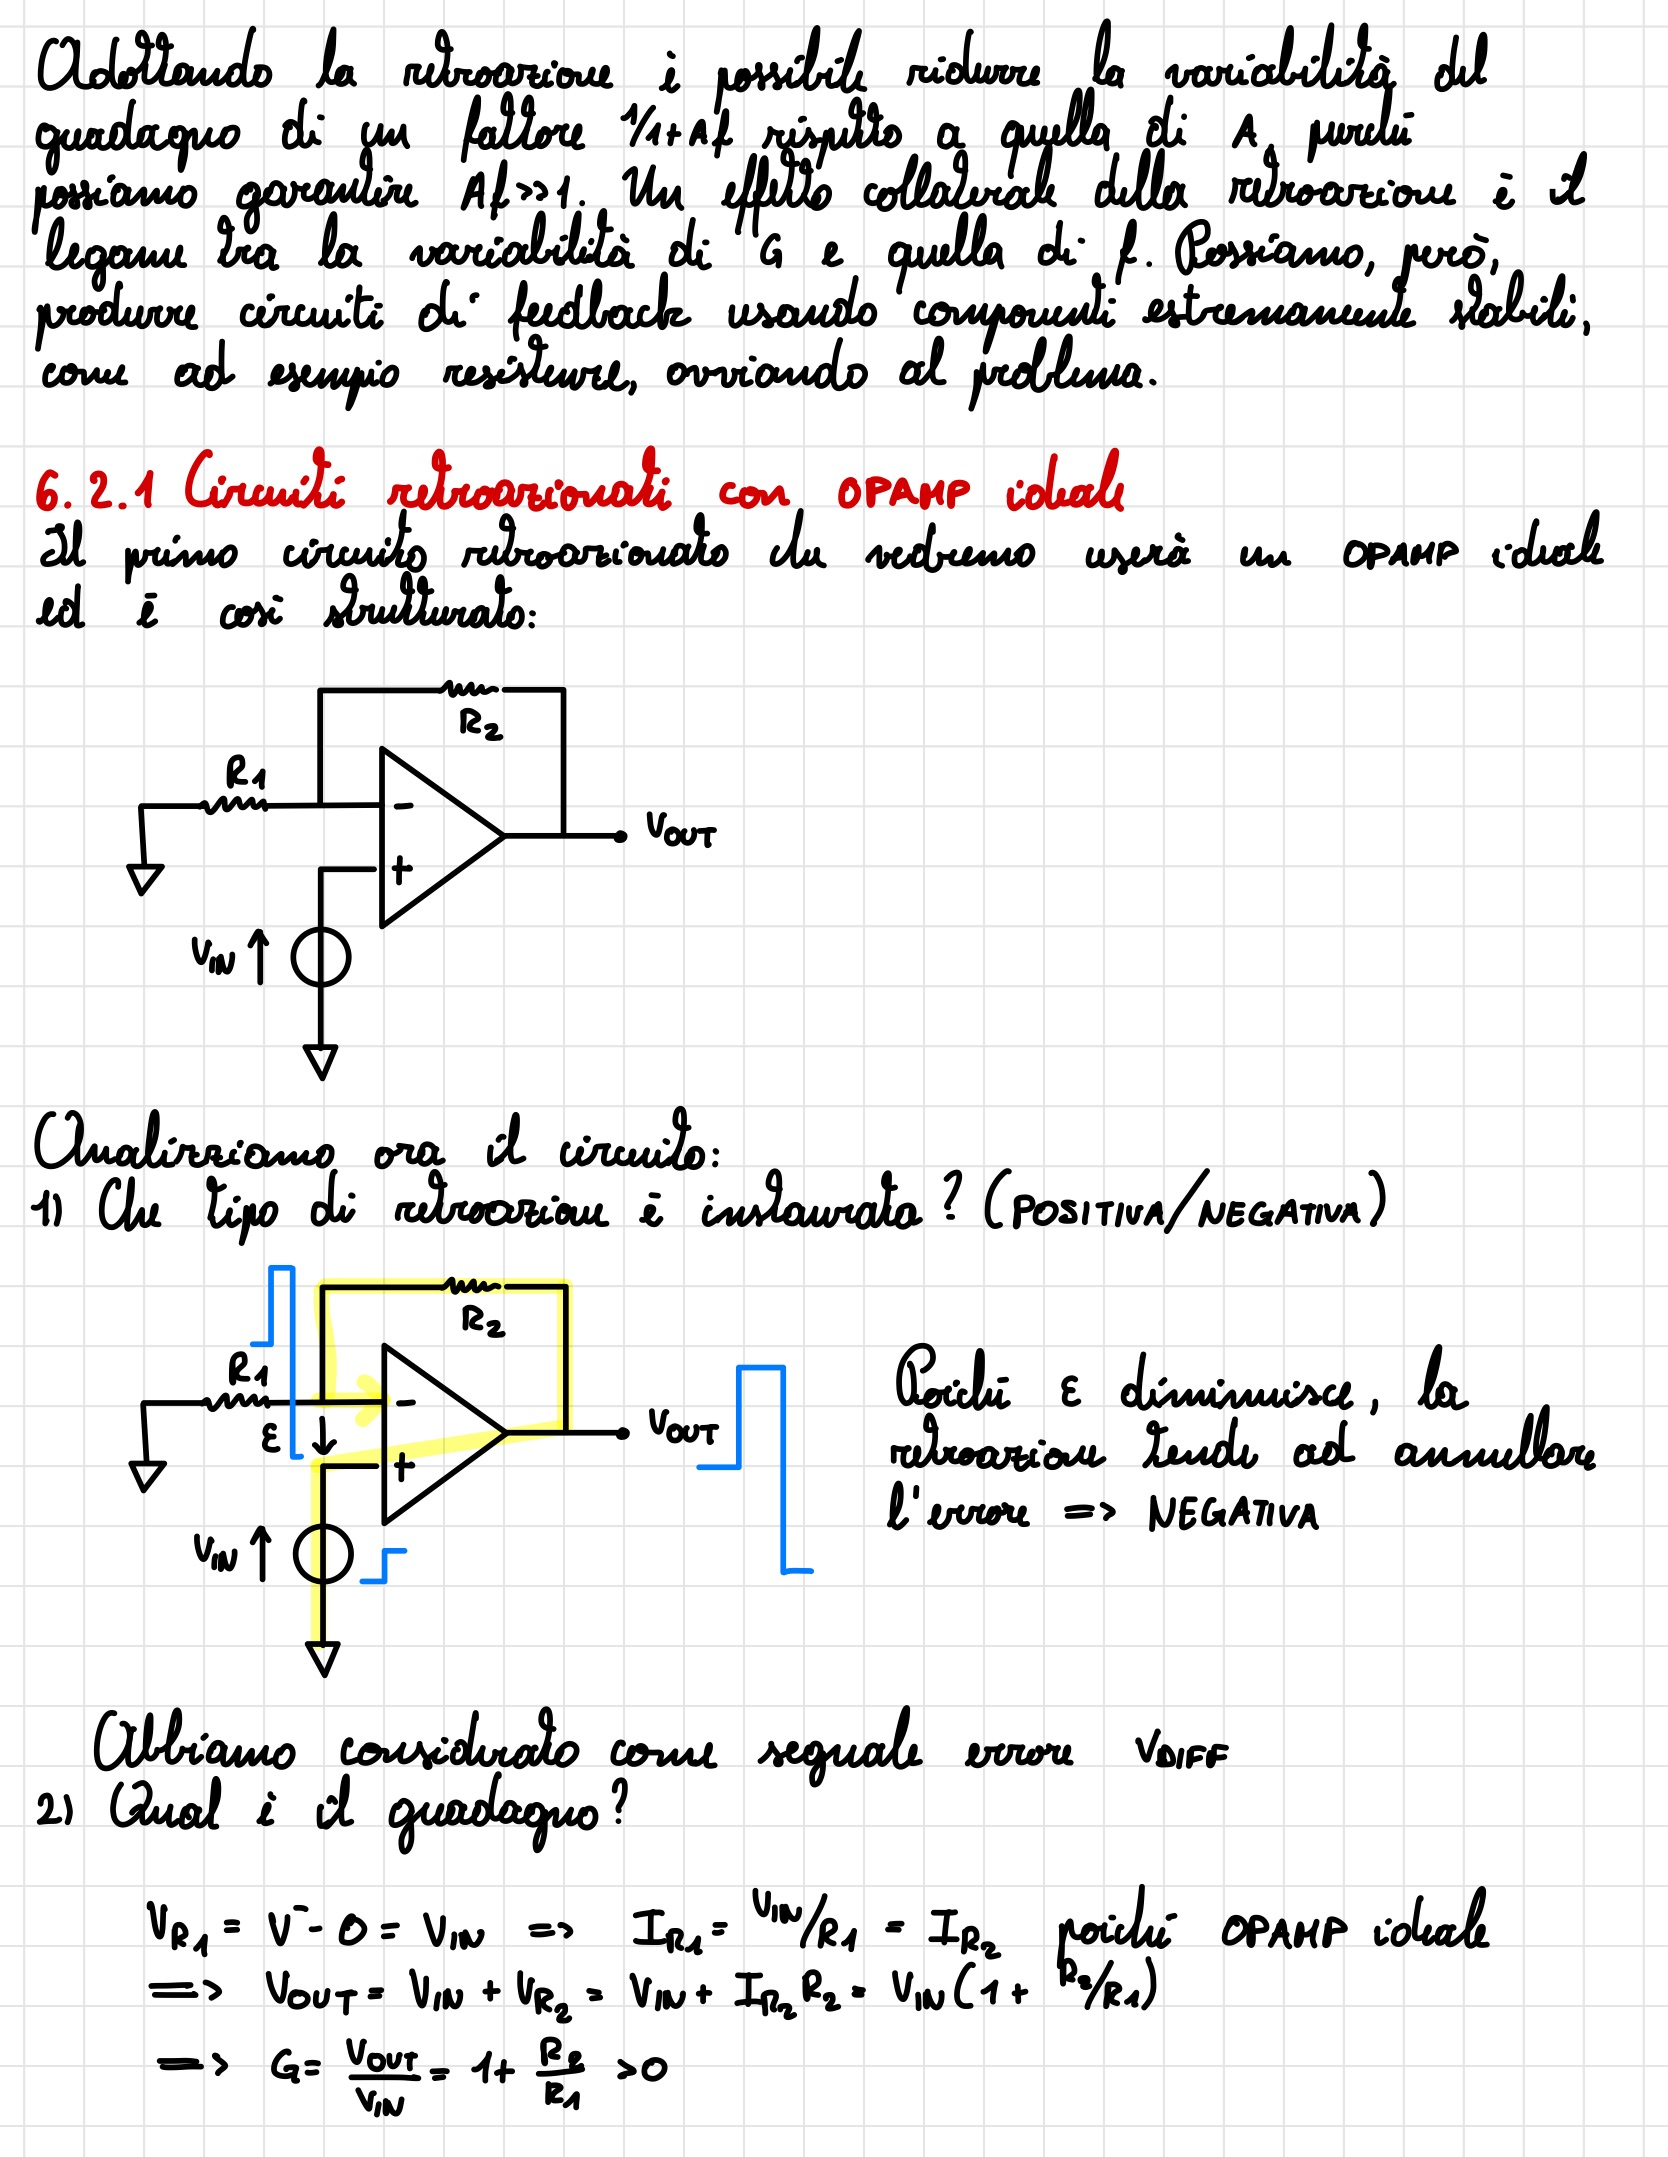 Adottando la retroazione è possibile ridurre la variabilità del
guadagno di un fattore 1/1+Af rispetto a quella di A purché
possiamo garantire Af>>1. Un effetto collaterale della retroazione è il
legame tra la variabilità di G e quella di f. Possiamo, però,
produrre circuiti di feedback usando componenti estremamente stabili,
come ad esempio resistenze, ovviando al problema.
6.2.1 Circuiti retroazionati con OPAMP ideale
Il primo circuito retroazionato che vedremo userà un OPAMP ideale
ed è così strutturato:
R2
R1
-
VOUT
+
VIN
Analizziamo ora il circuito:
1) Che tipo di retroazione è instaurata? (POSITIVA/NEGATIVA)
R2
R1
-
ε
VOUT
+
VIN
Poiché ε diminuisce, la
retroazione tende ad annullare
l'errore => NEGATIVA
Abbiamo considerato come segnale errore VDIFF
2) Qual è il guadagno?
VR1 = V⁻ - 0 = VIN => IR1 = VIN/R1 = IR2 poiché OPAMP ideale
=> VOUT = VIN + VR2 = VIN + IR2 R2 = VIN (1 + R2/R1)
=> G = VOUT/VIN = 1 + R2/R1 >0